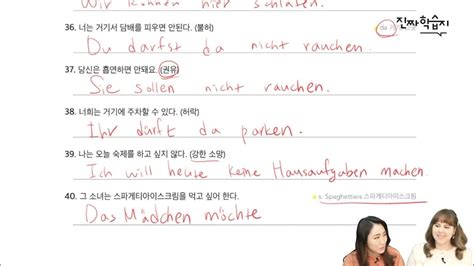 Wir können hier schlafen.
36. 너는 거기서 담배를 피우면 안된다. (불허)
Du darfst da nicht rauchen.
진짜학습지
37. 당신은 흡연하면 안돼요. (권유)
Sie sollen nicht rauchen.
38. 너희는 거기에 주차할 수 있다. (허락)
Ihr dürft da parken.
39. 나는 오늘 숙제를 하고 싶지 않다. (강한 소망)
Ich will heute keine Hausaufgaben machen.
40. 그 소녀는 스파게티아이스크림을 먹고 싶어 한다.
s. Spaghettieis 스파게티아이스크림
Das Mädchen möchte